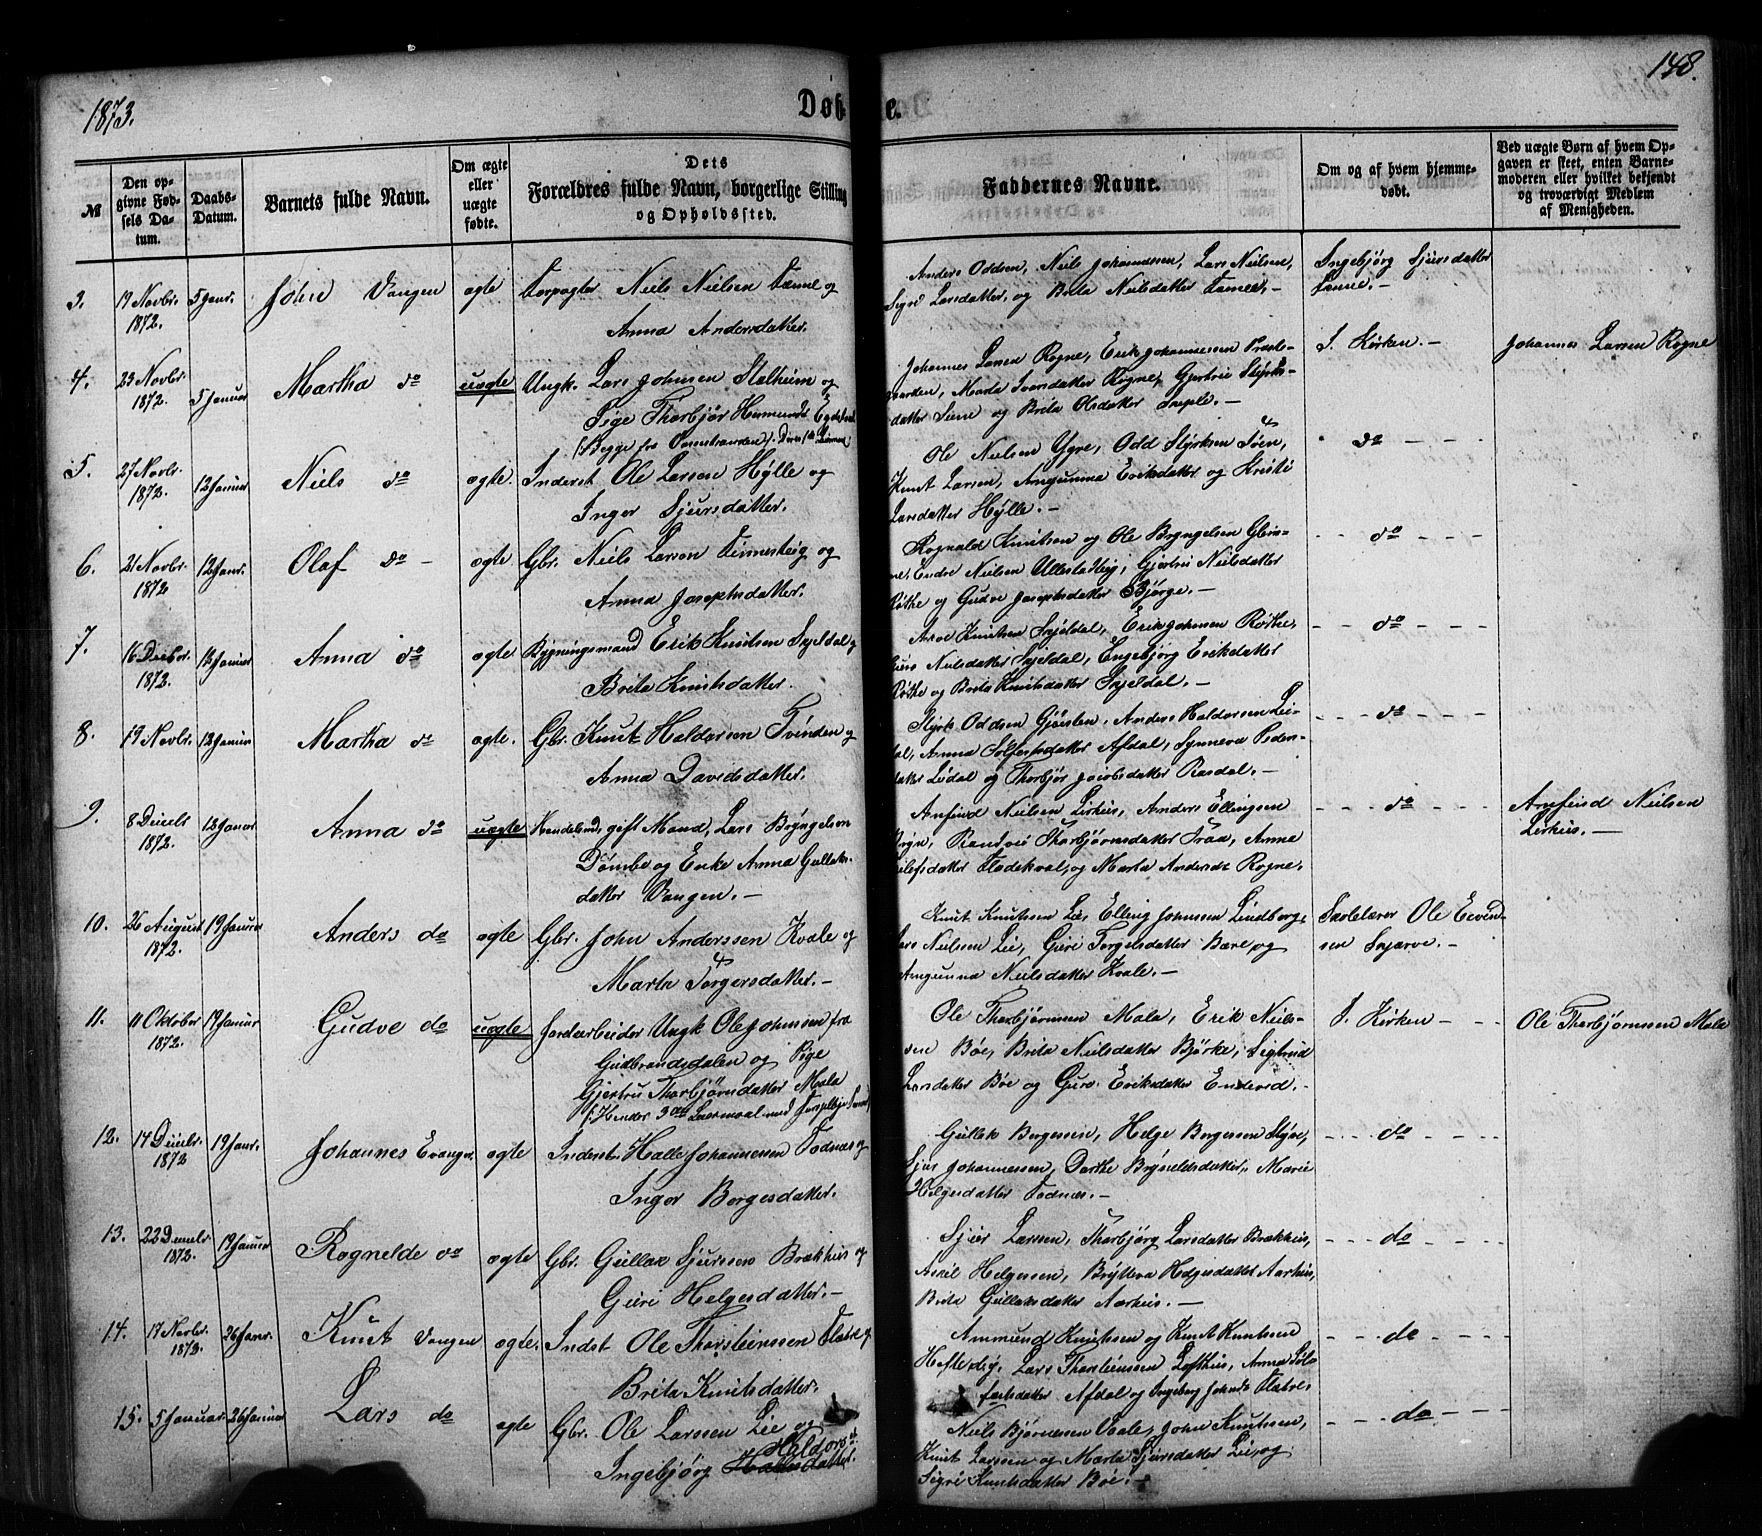 1873.
148.
Døb
e.
№
Den opgivne Fødsels Datum.
Daabs-Datum.
Barnets fulde Navn.
Om ægte eller uægte fødte.
Dets Forældres fulde Navn, borgerlige Stilling og Opholdssted.
Faddernes Navne.
Om og af hvem hjemmedøbt.
Ved uægte Børn af hvem Opgaven er skeet, enten Barnemoderen eller hvilket bekjendt og troværdigt Medlem af Menigheden.
3. 19 Novbr. 1872. 5 Janr. John Vangen ægte Forpagter Niels Nielsen Tænne og
Anna Andersdatter.
Anders Oddsen, Niels Johannesen, Lars Nielsen,
Larsdatter, og Brita Nielsdatter
Ingebjørg Sjursdatter
4. 23 Novbr. 1872. 5 Januar Martha do uægte Ungk. Lars Johnsen Stalheim og
Pige Thorbjør
Johannes Larsen Rogne, Erik Johannessen
Marta Ivarsdatter Rogne, Gjertrui
datter Seim og Brita Olsdatter
I Kirken. -
Johannes Larsen Rogne
5. 27 Novbr. 1872. 12 Januar Niels do ægte. Inderst Ole Larsen Hylle og
Inger Sjursdatter.
Ole Nielsen Ygre, Odd Styrksen Tøen,
Knut Larsen, Angunna Eriksdatter og Kristi
Larsdatter Hylle. -
do
6. 21 Novbr. 1872 12 Janr. Olaf do - ægte Gbr. Niels Larsen Finnesteig og
Anna Josephsdatter.
Rognald Knutsen og Ole Bryngelsen
Endre Nielsen Gjertrui Nielsdatter
Røthe og Gudve Josephsdatter Bjørge. -
do
7. 16 Decbr. 1872. 12 Januar Anna do ægte Bygningsmand Erik Knudsen Skjeldal og
Brita Knutsdatter.
Knutsen Skjeldal, Erik Johnsen Røthe,
Nielsdatter Skjeldal, Engebjørg Eriksdatter
Røthe og Brita Knutsdatter Skjeldal. -
do
8. 19 Novbr. 12 Januar Martha do ægte. Gbr. Knut Haldorsen Tvinden og
Anna Davidsdatter.
Styrk Oddsen Gjersten, Anders Haldorsen
Anna Sølfestsdatter Afdal, Synneva Peders-
datter Lidal og Thorbjør Jacobsdatter Rasdal. -
do
9. 8 Decbr 1872. 12 Januar Anna do uægte Handelsmd, gift Mand, Lars Bryngelsen
Dømbe og Enke Anna Gullaks-
datter Vangen. -
Arnfind Nielsen Lirhus, Anders Ellingsen
Randvei Thorbjørnsdatter Traa, Anna
og Marta Andersdt Rogne.
do
Arnfind Nielsen
Lirhus. -
10. 26 August 1872. 19 Januar Anders do ægte Gbr. John Anderssen Kvale og
Marta Torgersdatter. -
Knut Knutssen Lie, Elling Johnsen Lindborg,
Lars Nielsen Lie, Guri Torgelsdatter og
Angunna Nielsdatter Kvale. -
Skolelærer Ole Eevind-
sen Skjerve. -
11. 11 Oktober 1872. 19 Januar Gudve do uægte Jordarbeider Ungk Ole Johnsen fra
Gudbrandsdalen og Pige
Gjertru Thorbjørnsdatter Mala
Ole Thorbjørnsen Mala, Erik Niels-
sen Bøe, Brita Nielsdatter Bjørke, Sigtrud
Larsdatter Bøe og Guro Eriksdatter Enderud. -
I. Kirken -
Ole Thorbjørnsen Mala
12. 14 Decbr. 1872 19 Janr. Johannes Evanger ægte Inderst Halle Johannessen Fadnæs og
Inger Borgesdatter.
Gullak Borgersen, Helge Borgersen
Sjur Johannessen, Dorthe Maria
Helgesdatter Fadnæs. -
do
13. 22 Decmbr 1872. 19 Januar Rognelde do ægte Gbr. Gullak Sjurssen Brækhus og
Guri Helgesdatter. -
Sjur Larssen, Thorbjørg Larsdatter Brækhus,
Helgessen, Bryteva Helgesdatter Aarhus,
Brita Gullaksdatter Aarhus. -
do
14. 17 Novbr. 1872. 26 Janr. Knut Vangen ægte. Indst Ole Thorsteinssen Flatre og
Brita Knutsdatter.
Ammund Knutssen og Knut Knutssen
Lars Thorsteinssen Lofthus, Anna Søl-
festsdatter Afdal og Ingeborg Johnsdt Flatre. -
do
15. 5 Januar 26 Januar Lars do ægte Gbr. Ole Larssen Lie og
Ingebjørg Haldorsdatter.
Niels Bjørnessen John Knutssen,
Knut Larssen og Marta Sjursdatter Lie, og
Sigri Knutsdatter Bøe. -
do